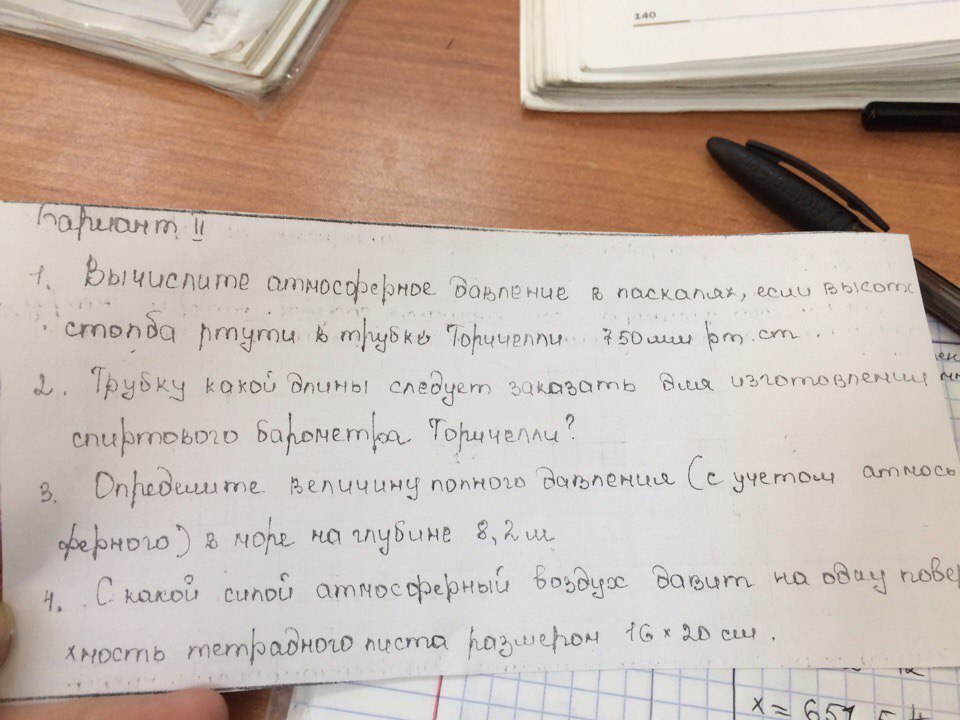 140
Вариант II
1. Вычислите атмосферное давление в паскалях, если высота
столба ртути в трубке Торичелли 750 мм рт. ст.
2. Трубку какой длины следует заказать для изготовления
спиртового барометра Торичелли?
3. Определите величину полного давления (с учетом атмось
ферного) в море на глубине 8,2 м
4. С какой силой атмосферный воздух давит на одну повер
хность тетрадного листа размером 16 × 20 см.